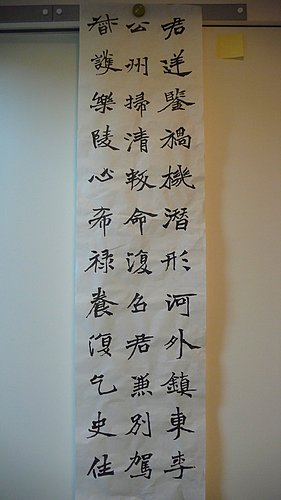 君逆鑒禍機潛形河外鎮東李
公州掃清叛命復召君兼別駕
督護樂陵心希祿養復乞史